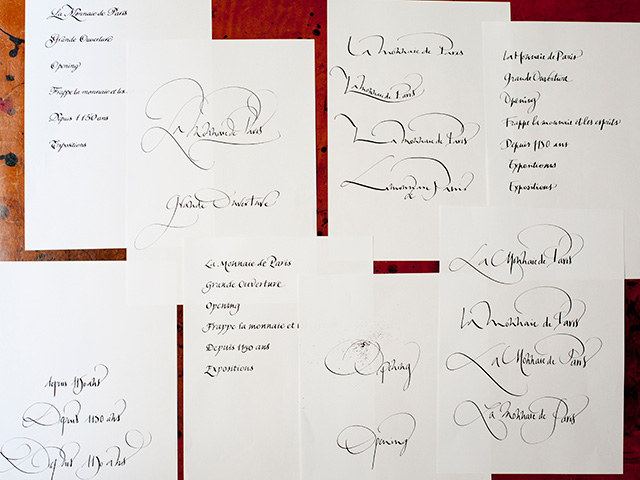 La Monnaie de Paris
Grande Ouverture
Opening
Frappe la monnaie et les
Depuis 1150 ans
Expositions
La Monnaie de Paris
Grande Ouverture
La Monnaie de Paris
La Monnaie de Paris
La Monnaie de Paris
La monnaie de Paris
La Monnaie de Paris
Grande Ouverture
Opening
Frappe la monnaie et les esprits
Depuis 1150 ans
Expositions
Expositions
depuis 1150 ans
Depuis 1150 ans
Depuis 1150 ans
La Monnaie de Paris
Grande Ouverture
Opening
Frappe la monnaie et l
Depuis 1150 ans
Expositions
Opening
Opening
La Monnaie de Paris
La Monnaie de Paris
La Monnaie de Paris
La Monnaie de Paris